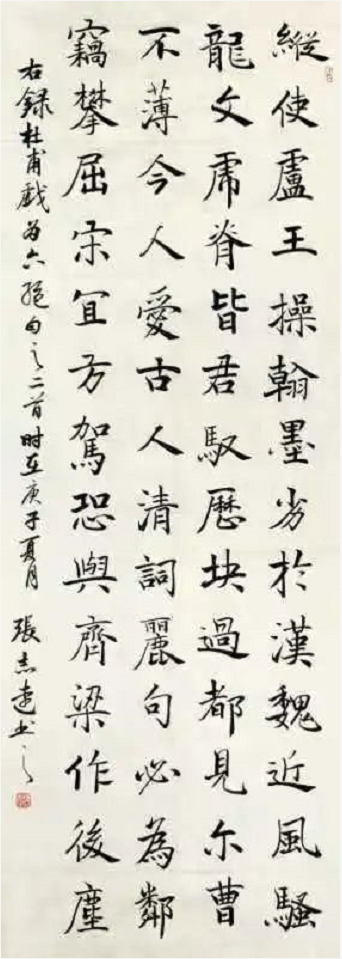 縱使盧王操翰墨劣於漢魏近風騷
龍文虎脊皆君馭歷塊過都見尔曹
不薄今人愛古人清詞麗句必為鄰
竊攀屈宋宜方駕恐與齊梁作後塵
右錄杜甫戲為六絕句之二首時在庚子夏月 張志書之